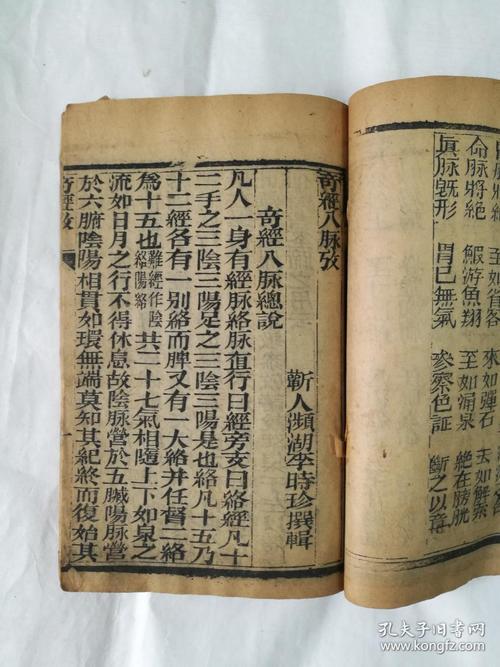 命脉將絕 鰕游魚翔 至如涌泉 絕在膀胱
眞脉旣形 胃已無氣 參察色証 斷之以
奇經八脉攷
蘄人瀕湖李時珍撰輯
奇經八脉總說
凡人一身有經脉絡脉直行曰經旁支曰絡經凡十
二手之三陰三陽足之三陰三陽是也絡凡十五乃
十二經各有一別絡而脾又有一大絡并任督二絡
爲十五也難經作陰絡陽絡共二十七氣相隨上下如泉之
流如日月之行不得休息故陰脉營於五臟陽脉營
於六腑陰陽相貫如環無端莫知其紀終而復始其
奇經攷
一
孔夫子旧书网
www.kongfz.com